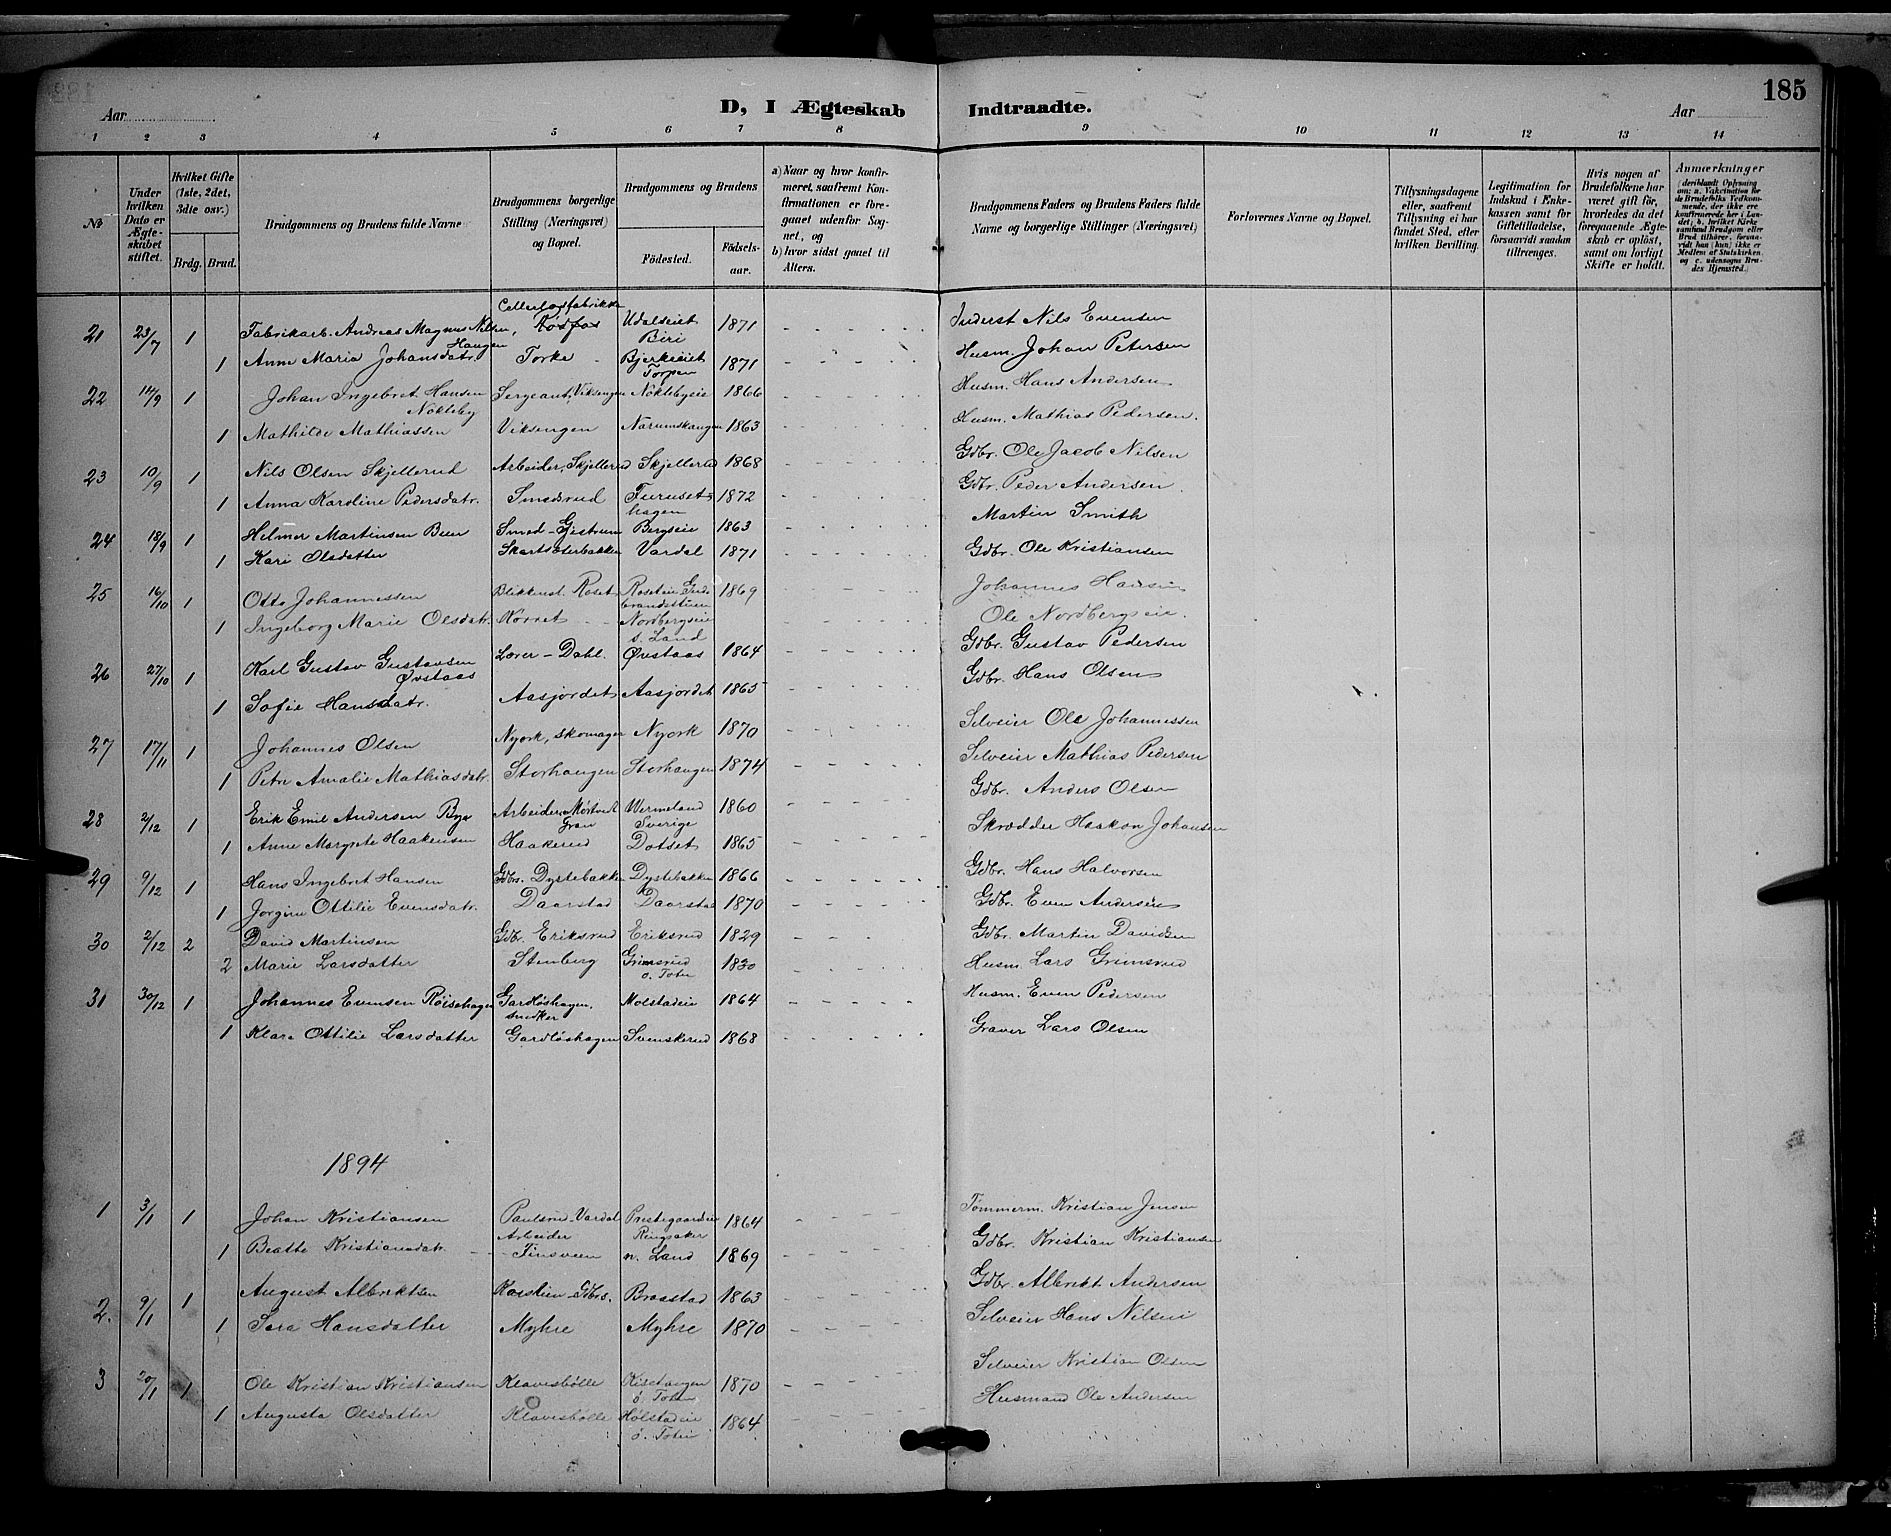 185
D, I Ægteskab Indtraadte.
Aar Aar
1 2 3 4 5 6 7 8 9 10 11 12 13 14
№
Under hvilken Dato er Ægteskabet stiftet.
Hvilket Gifte (1ste, 2det, 3die osv.)
Brdg. Brud.
Brudgommens og Brudens fulde Navne
Brudgommens borgerlige Stilling (Næringsvei) og Bopæl.
Brudgommens og Brudens
Fødested. Fødselsaar.
a) Naar og hvor konfirmeret, saafremt Konfirmationen er foregaaet udenfor Sognet, og
b) hvor sidst gaaet til Alters.
Brudgommens Faders og Brudens Faders fulde Navne og borgerlige Stillinger (Næringsvei)
Forlovernes Navne og Bopæl.
Tillysningsdagene eller, saafremt Tillysning ei har fundet Sted, efter hvilken Bevilling.
Legitimation for Indskud i Enkekassen samt for Giftetilladelse, forsaavidt saadan tiltrænges.
Hvis nogen af Brudefolkene har været gift før, hvorledes da det foregaaende Ægteskab er opløst, samt om lovligt Skifte er holdt.
Anmærkninger
(deriblandt Oplysning om: a. Vaksination for de Brudefolks Vedkommende, der ikke ere konfirmerede her i Landet; b. hvilket Kirkesamfund Brudgom eller Brud tilhører, forsaavidt han (hun) ikke er Medlem af Statskirken, og c. udensogns Brudes Hjemsted.)
21 23/7 1 Fabrikarb. Andreas Magnus Nilsen Haugen, Cellulosefabrikke Rødfos Udalseiet Biri 1871 Inderst Nils Evensen
1 Anne Maria Johansdatr. Torke Bjerkeeiet Torpen 1871 Husm. Johan Petersen
22 14/9 1 Johan Ingebret Hansen Nøkleby Sergeant, Viksengen Nøklebyeie 1866 Husm. Hans Andersen
1 Mathilde Mathiassen Viksengen Narumshaugen 1863 Husm. Mathias Pedersen.
23 10/9 1 Nils Olsen Skjellerud Arbeider, Skjellerud Skjellerud 1868 Gdbr. Ole Jacob Nilsen
1 Anna Karoline Pedersdatr. Smedsrud Furusethagen 1872 Gdbr. Peder Andersen
24 18/9 1 Helmer Martinsen Beier Smed - Gjistrum Bergseie 1863 Martin Smith
1 Kari Olsdatter Skartsæterbakken Vardal 1871 Gdbr. Ole Kristiansen
25 16/10 1 Otto Johannessen Blikkensl. Roset Roseteie Gudbrandsstuen 1869 Johannes Hansen
1 Ingeborg Marie Olsdatr. Korset Nordbergseie s. Land Ole Nordbergseie.
26 27/10 1 Karl Gustav Gustavsen Øvstaas Lærer - Dahl. Øvstaas 1864 Gdbr. Gustav Pedersen
1 Sofie Hansdatr. Aasjordet Aasjordet 1865 Gdbr. Hans Olsen
27 17/11 1 Johannes Olsen Nyork, skomager Nyork 1870 Selveier Ole Johannessen
1 Petre Amalie Mathiasdatr. Storhaugen Storhaugen 1874 Selveier Mathias Pedersen
28 2/12 1 Erik Emil Andersen Bye Arbeider, Gran Wermeland Sverige 1860 Gdbr. Anders Olsen
1 Anne Margrete Haakensen Haakerud Dotset 1865 Skrædder Haakon Johansen
29 9/12 1 Hans Ingebret Hansen Gdbr. Dystebakken Dystebakken 1866 Gdbr. Hans Halvorsen
1 Jorgine Ottilie Evensdatr. Daarstad Daarstad 1870 Gdbr. Even Andersen
30 2/12 2 David Martinsen Gdbr. Eriksrud Eriksrud 1829 Gdbr. Martin Davidsen
2 Marie Larsdatter Stenberg Grimsrud ø. Toten 1830 Husm. Lars Grimsrud
31 30/12 1 Johannes Evensen Røisehagen Gardløshagen, snedker Molstadeie 1864 Husm. Even Pedersen
1 Klara Ottilie Larsdatter Gardløshagen Svenskerud 1868 Graver Lars Olsen
1894
1 3/1 1 Johan Kristiansen Paulsrud - Vardal Arbeider Prestegaardseie Ringsaker 1864 Tømmerm. Kristian Jensen
1 Beatte Kristiansdatr. Finsveen n. Land 1869 Gdbr. Kristian Kristiansen
2. 9/1 1 August Albriktsen Korslien - Gdbrs. Braastad 1863 Gdbr. Albrikt Andersen
1 Sara Hansdatter Myhre Myhre 1870 Selveier Hans Nilsen
3 20/1 1 Ole Kristian Kristiansen Klavesbølle Kisehaugen ø. Toten 1870 Selveier Kristian Olsen
1 Augusta Olsdatter Klavesbølle Hølstadeie ø. Toten 1864 Husmand Ole Andersen